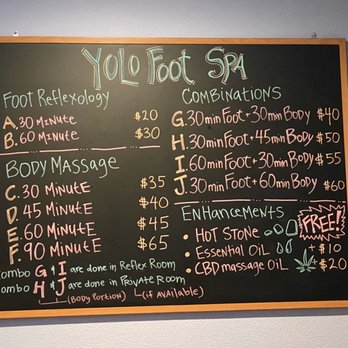 YOLO FOOT SPA
FOOT REFLEXOLOGY
A. 30 MINUTE $20
B. 60 MINUTE $30
BODY MASSAGE
C. 30 MINUTE $35
D. 45 MINUTE $40
E. 60 MINUTE $45
F. 90 MINUTE $65
COMBINATIONS
G. 30min FOOT + 30min BODY $40
H. 30min FOOT + 45min BODY $50
I. 60min FOOT + 30min BODY $55
J. 30min FOOT + 60min BODY $60
ENHANCEMENTS
• HOT STONE FREE!
• ESSENTIAL OIL +$10
• CBD MASSAGE OIL +$20
ombo G & I are done in REFLEX ROOM
ombo H & J are done in PRIVATE ROOM
(BODY PORTION) (if AVAILABLE)